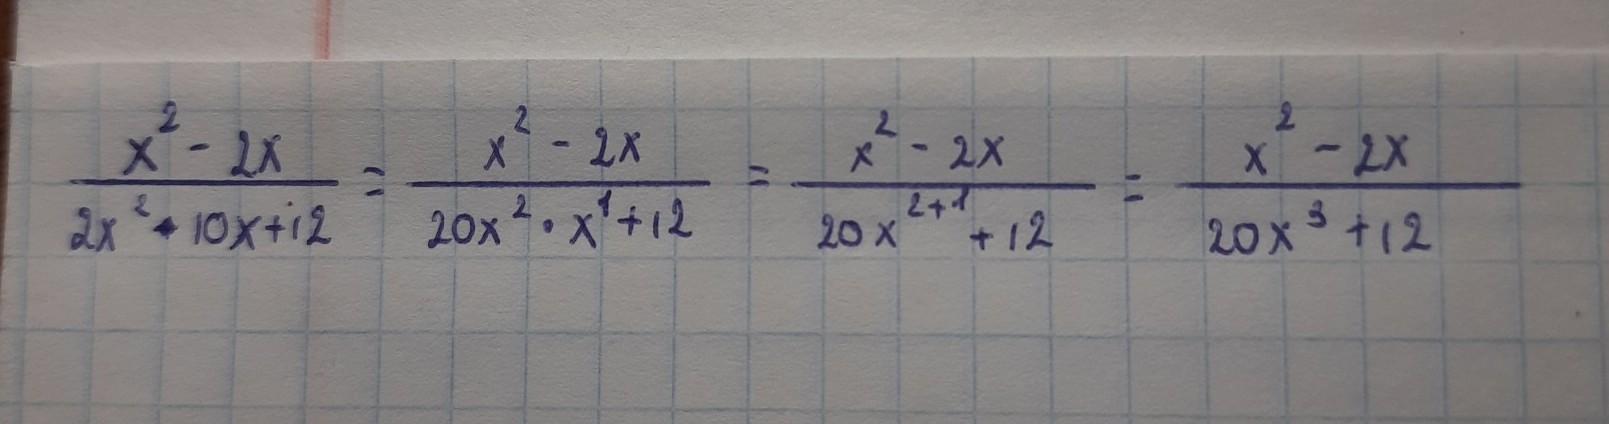 (x² - 2x)/(2x² · 10x+12) = (x² - 2x)/(20x² · x¹ + 12) = (x² - 2x)/(20x²⁺¹ + 12) = (x² - 2x)/(20x³ + 12)